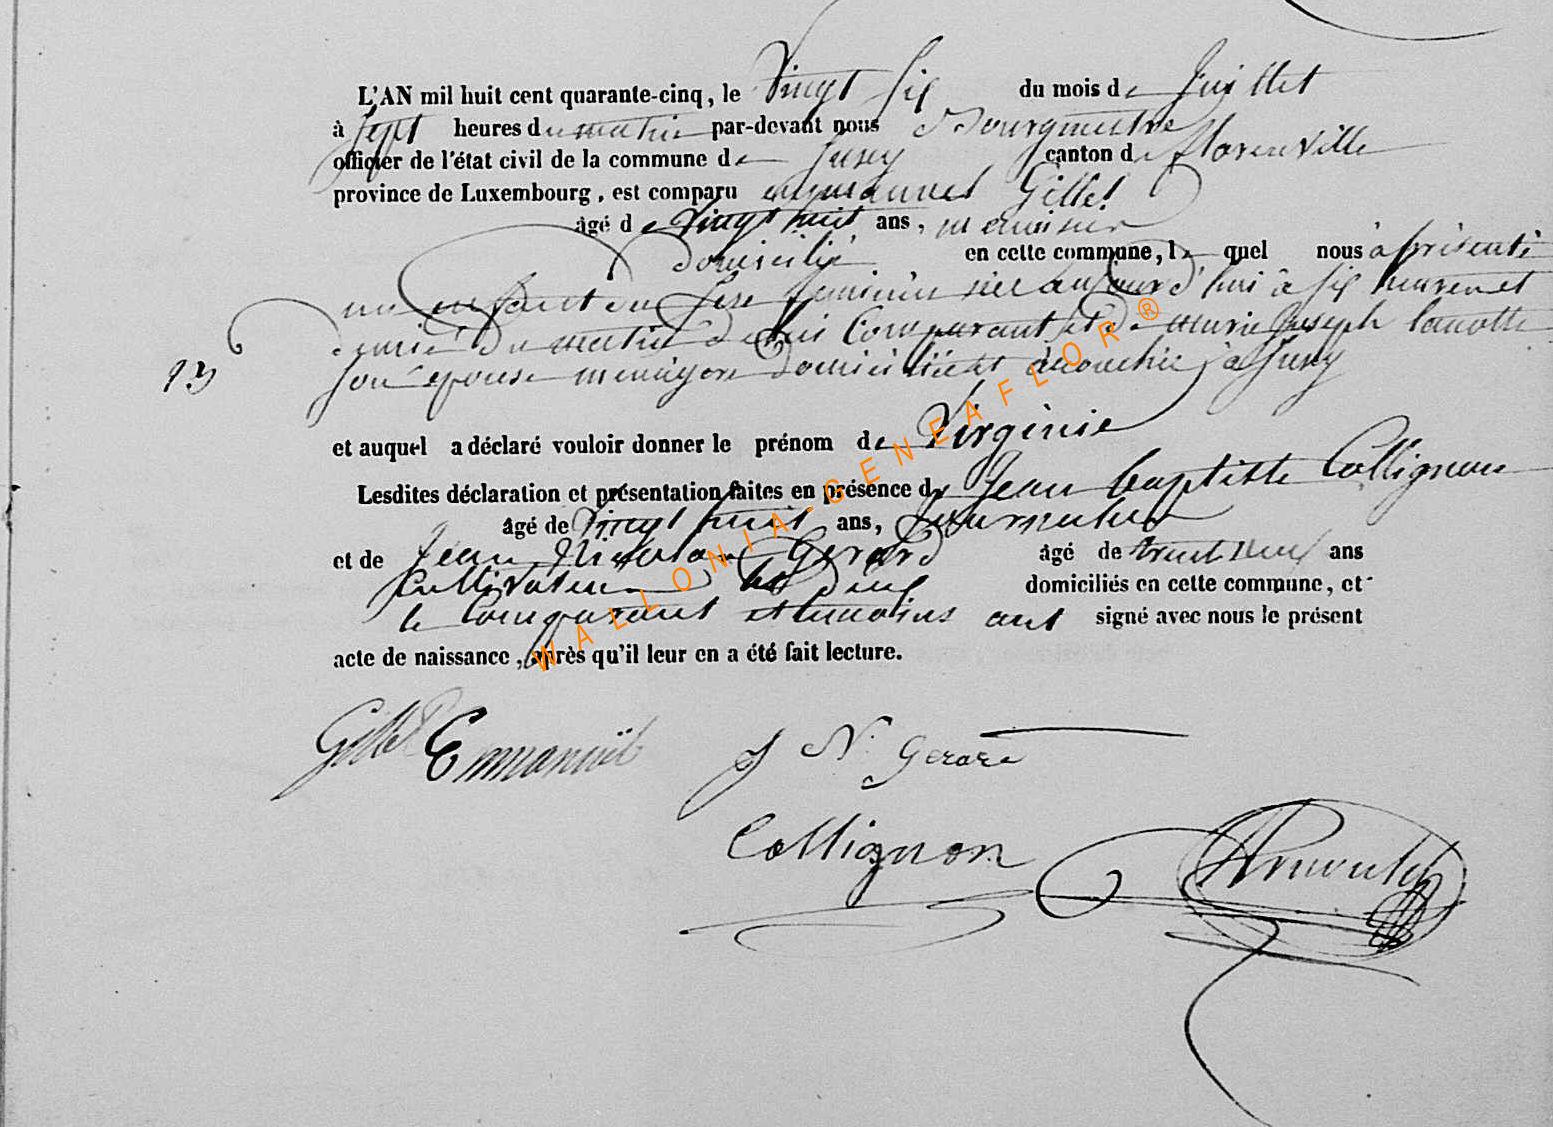 L'AN mil huit cent quarante-cinq, le Vingt six du mois de Juillet
à sept heures du matin par-devant nous Bourgmestre
officier de l'état civil de la commune de Jusey canton de florenville
province de Luxembourg, est comparu emmanuel Gillet
âgé de Vingt huit ans, menuisier
domicilié en cette commune, lequel nous à présenté
un enfant du sexe feminin née aujourd'hui à six heures et
demie du matin de lui Comparant et de marie Joseph lanotte
son épouse menagere domiciliée et accouchée à Jusey
13
et auquel a déclaré vouloir donner le prénom de Virginie
Lesdites déclaration et présentation faites en présence de Jean baptiste Collignon
âgé de Vingt huit ans,
et de Jean Nicolas Gerard âgé de trente neuf ans
Cultivateur les deux domiciliés en cette commune, et
le Comparant et temoins ont signé avec nous le présent
acte de naissance, après qu'il leur en a été fait lecture.
Gillet Emmanuël J N. Gerard
Collignon Arnould
WALLONIA-GENEAFLOR®